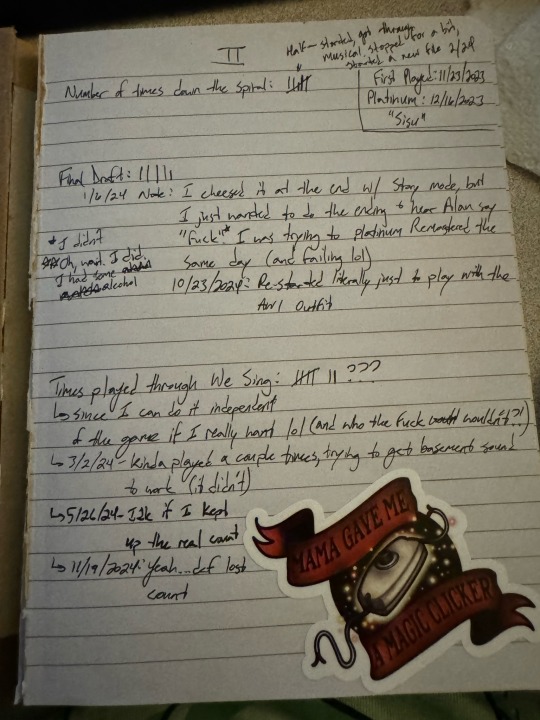 II
Half-started, got through
musical, stopped for a bit,
started a new file 2/24
Number of times down the spiral: 卌
First Played: 11/23/2023
Platinum: 12/16/2023
"Sisu"
Final Draft: |||||
1/6/24 Note: I cheesed it at the end w/ Story mode, but
I just wanted to do the ending & hear Alan say
"Fuck."* I was trying to platinum Remastered the
same day (and failing lol)
* I didn't
** Oh, wait. I did.
I had some
alcohol
10/23/2024: Re-started literally just to play with the
AW1 Outfit
Times played through We Sing: 卌 || ???
↳ Since I can do it independent
of the game if I really want lol (and who the fuck wouldn't?!)
↳ 3/2/24 - Kinda played a couple times, trying to get basement sound
to work (it didn't)
↳ 5/26/24 - Idk if I kept
up the real count
↳ 11/19/2024: Yeah...def lost
count
MAMA GAVE ME
A MAGIC CLICKER